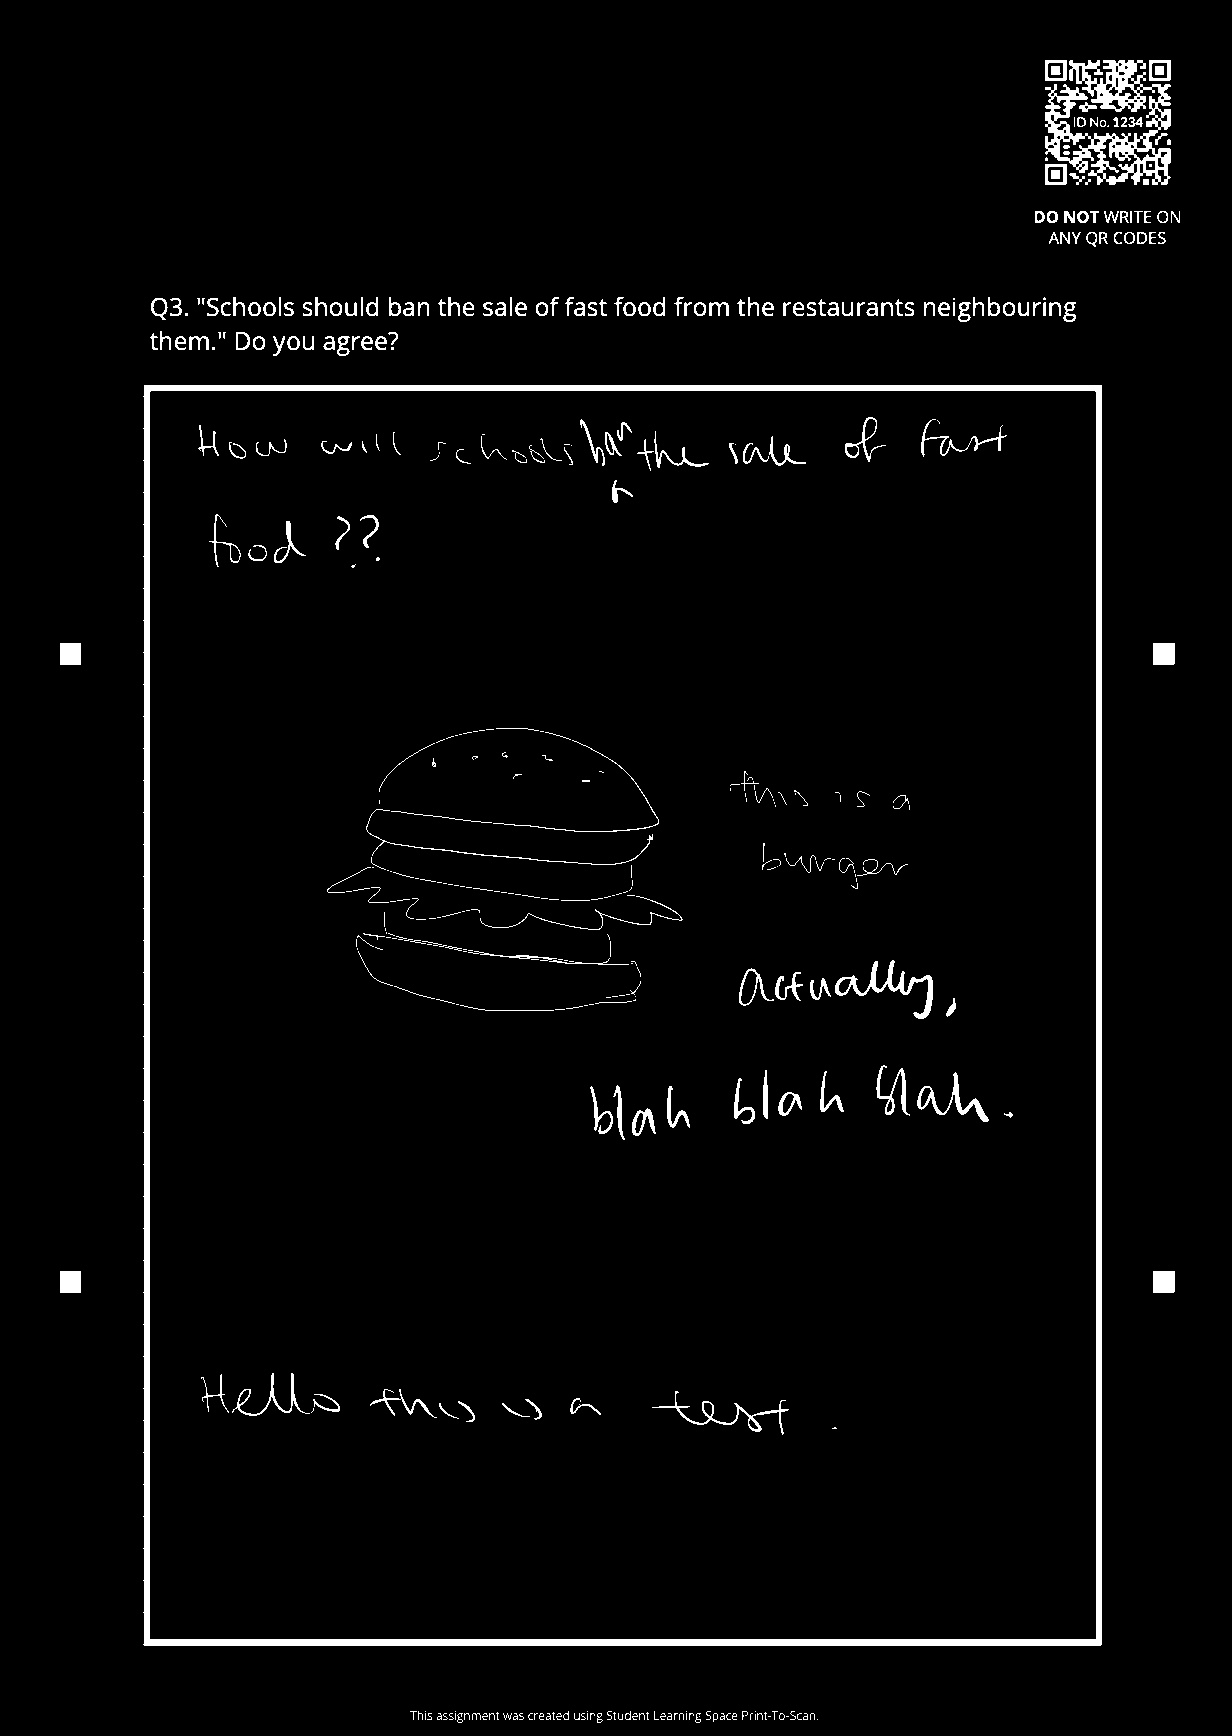 ID No. 1234
DO NOT WRITE ON
ANY QR CODES
Q3. "Schools should ban the sale of fast food from the restaurants neighbouring
them." Do you agree?
How will schools ban the sale of fast
food ??
this is a
burger
actually,
blah blah blah.
Hello this is a test.
This assignment was created using Student Learning Space Print-To-Scan.